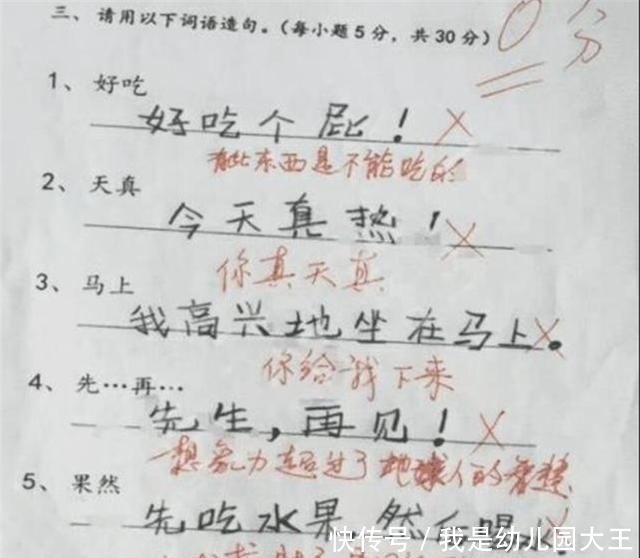 三、请用以下词语造句。(每小题5分，共30分)
0分
1、好吃
好吃个屁！
有些东西是不能吃的
2、天真
今天真热！
你真天真
3、马上
我高兴地坐在马上。
你给我下来
4、先…再…
先生，再见！
想象力超过了地球人的智慧
5、果然
先吃水果，然后喝
快传号／我是幼儿园大王